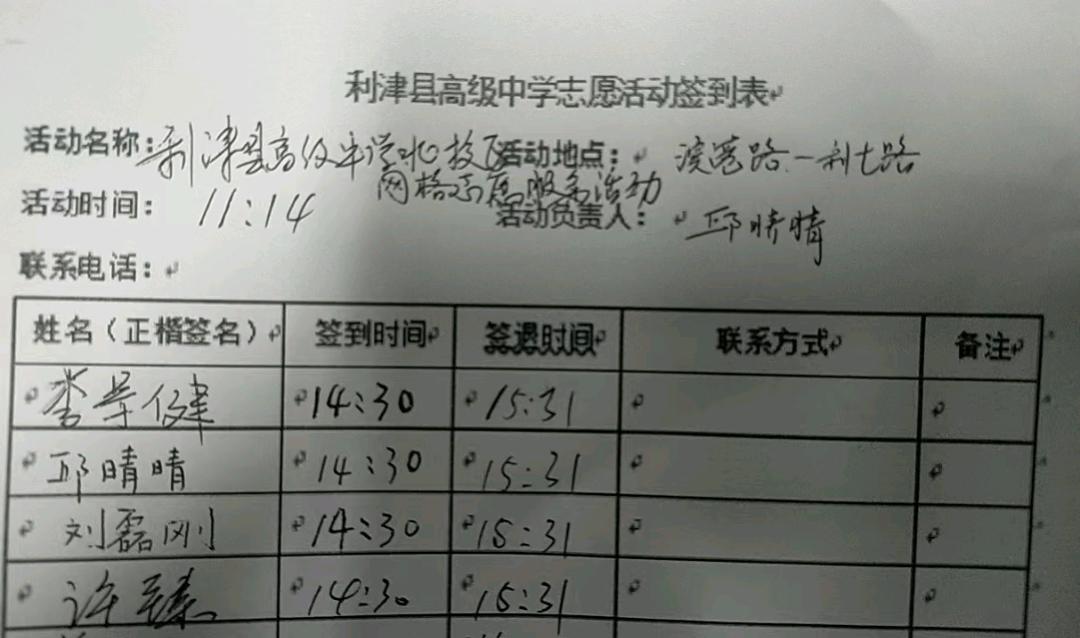 利津县高级中学志愿活动签到表
活动名称：利津县高级中学 活动地点：滨港路-利七路
网格志愿服务活动
活动时间：11:14 活动负责人：邱晴晴
联系电话：
姓名（正楷签名） 签到时间 签退时间 联系方式 备注
李荣健 14:30 15:31
邱晴晴 14:30 15:31
刘磊刚 14:30 15:31
许臻 14:30 15:31